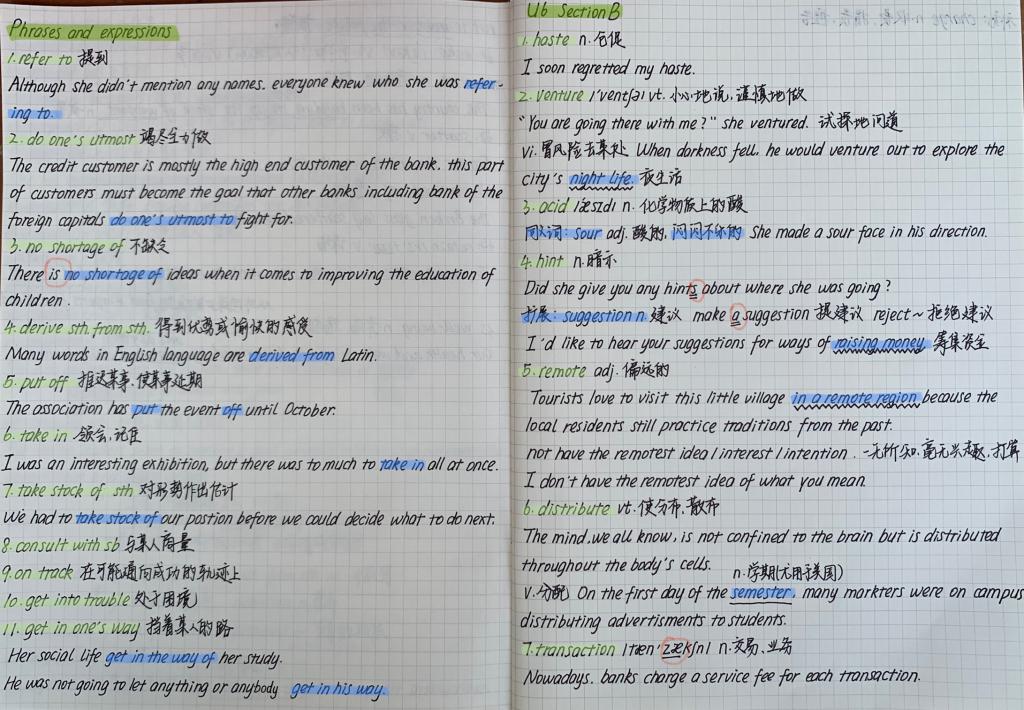 Phrases and expressions
1. refer to 提到
Although she didn't mention any names. everyone knew who she was refer-
ing to.
2. do one's utmost 竭尽全力做
The credit customer is mostly the high end customer of the bank. this part
of customers must become the goal that other banks including bank of the
foreign capitals do one's utmost to fight for.
3. no shortage of 不缺乏
There is no shortage of ideas when it comes to improving the education of
children.
4. derive sth. from sth. 得到优势或愉快的感受
Many words in English language are derived from Latin.
5. put off 推迟某事.使某事延期
The association has put the event off until October.
6. take in 领会.记住
I was an interesting exhibition, but there was to much to take in all at once.
7. take stock of sth 对形势作出估计
We had to take stock of our postion before we could decide what to do next.
8. consult with sb 与某人商量
9. on track 在可能通向成功的轨迹上
10. get into trouble 处于困境
11. get in one's way 挡着某人的路
Her social life get in the way of her study.
He was not going to let anything or anybody get in his way.
U6 Section B
1. haste n. 仓促
I soon regretted my haste.
2. venture /'ventʃə/ vt. 小心地说, 谨慎地做
"You are going there with me?" she ventured. 试探地问道
vi. 冒风险去某处 When darkness fell, he would venture out to explore the
city's night life. 夜生活
3. acid /'æsɪd/ n. 化学物质上的酸
同义词: sour adj. 酸的, 闷闷不乐的 She made a sour face in his direction.
4. hint n. 暗示
Did she give you any hints about where she was going?
扩展: suggestion n. 建议 make a suggestion 提建议 reject ~ 拒绝建议
I'd like to hear your suggestions for ways of raising money. 筹集资金
5. remote adj. 偏远的
Tourists love to visit this little village in a remote region because the
local residents still practice traditions from the past.
not have the remotest idea / interest / intention. 一无所知.毫无兴趣.打算
I don't have the remotest idea of what you mean.
6. distribute vt. 使分布.散布
The mind, we all know, is not confined to the brain but is distributed
throughout the body's cells. n. 学期(尤用于美国)
v. 分配 On the first day of the semester, many markters were on campus
distributing advertisments to students.
7. transaction /træn'zækʃn/ n. 交易.业务
Nowadays. banks charge a service fee for each transaction.